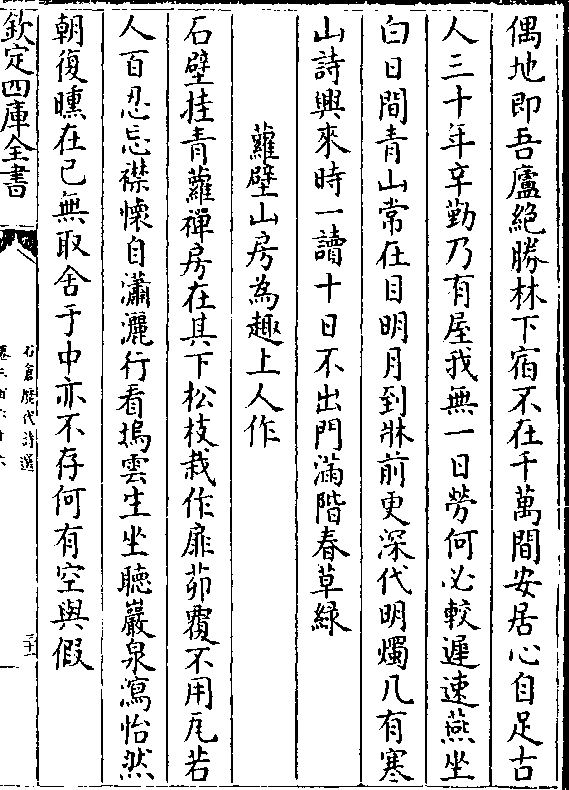 偶地即吾廬絶勝林下宿不在千萬間安居心自足古
人三十年辛勤乃有屋我無一日勞何必較遲速燕坐
白日間青山常在目明月到牀前更深代明燭几有寒
山詩興來時一讀十日不出門滿階春草緑
蘿壁山房為趣上人作
石壁挂青蘿禪房在其下松枝栽作扉茆覆不用瓦若
人百忍忘襟懷自瀟灑行看塢雲生坐聽巖泉瀉怡然
朝復曛在已無取舍于中亦不存何有空與假
欽定四庫全書
石倉歴代詩選